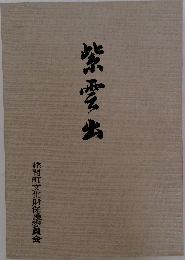 紫雲出
詫間町文化財保護委員会